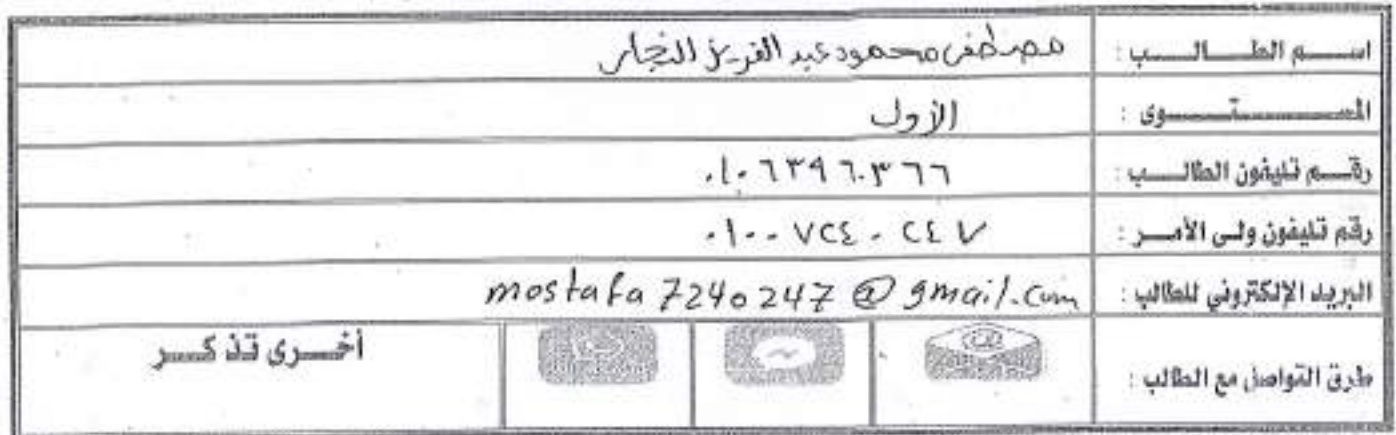 اسم الطالب : مصطفى محمود عبد العزيز النجار
المستوى : الأول
رقم تليفون الطالب : ٠١٠٦٣٩٦٠٣٦٦
رقم تليفون ولى الأمر : ٠١٠٠٧٢٤٠٢٤٧
البريد الإلكتروني للطالب : mostafa7240247@gmail.com
طرق التواصل مع الطالب : أخرى تذكر